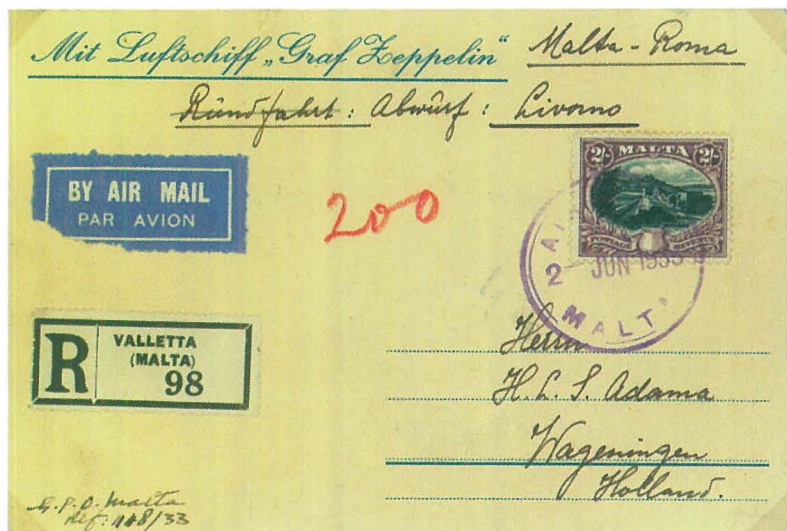 Mit Luftschiff „Graf Zeppelin“ Malta - Roma
Rundfahrt: Abwurf: Livorno
2/- MALTA 2/-
POSTAGE REVENUE
BY AIR MAIL
PAR AVION
200
2 JUN 1933
MALTA
R
VALLETTA
(MALTA)
98
Herrn
H. L. S. Adama
Wageningen
Holland.
G.P.O. Malta
Ref: /33